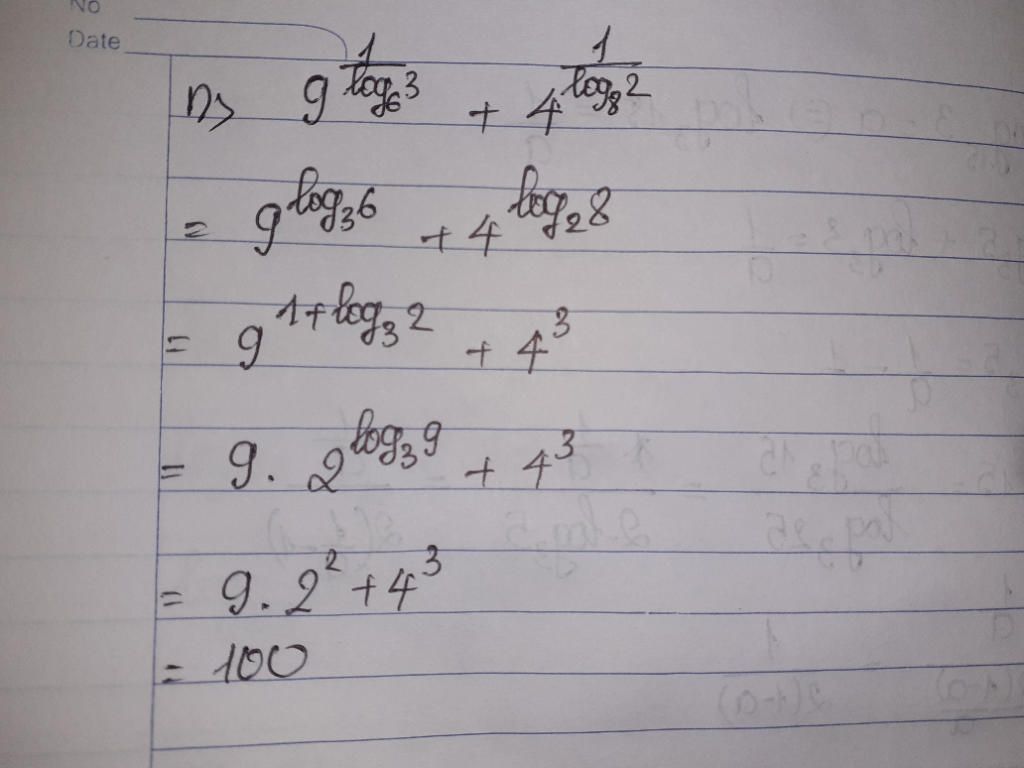 No
Date
n> 9^{\frac{1}{\log_6 3}} + 4^{\frac{1}{\log_8 2}}
= 9^{\log_3 6} + 4^{\log_2 8}
= 9^{1+\log_3 2} + 4^3
= 9 . 2^{\log_3 9} + 4^3
= 9 . 2^2 + 4^3
= 100